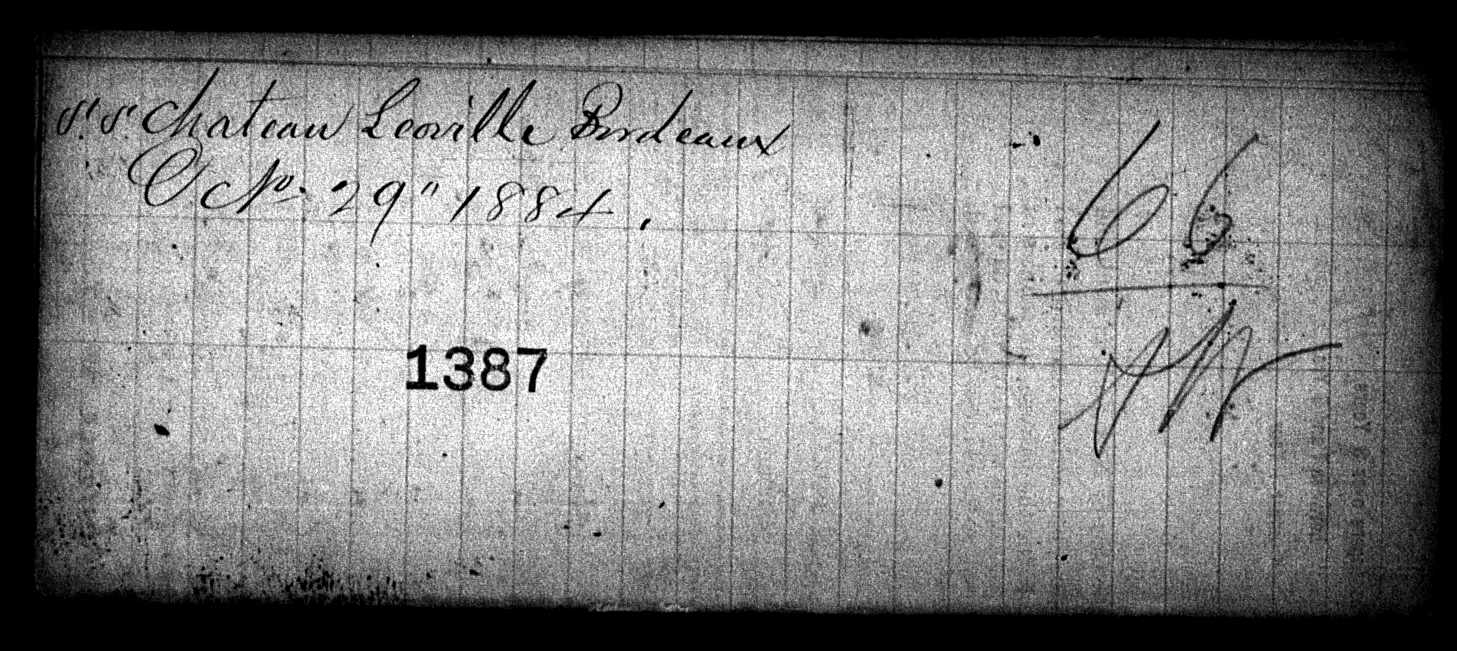 S.S. Chateau Leoville Bordeaux
Oct 29" 1884.
66
1387